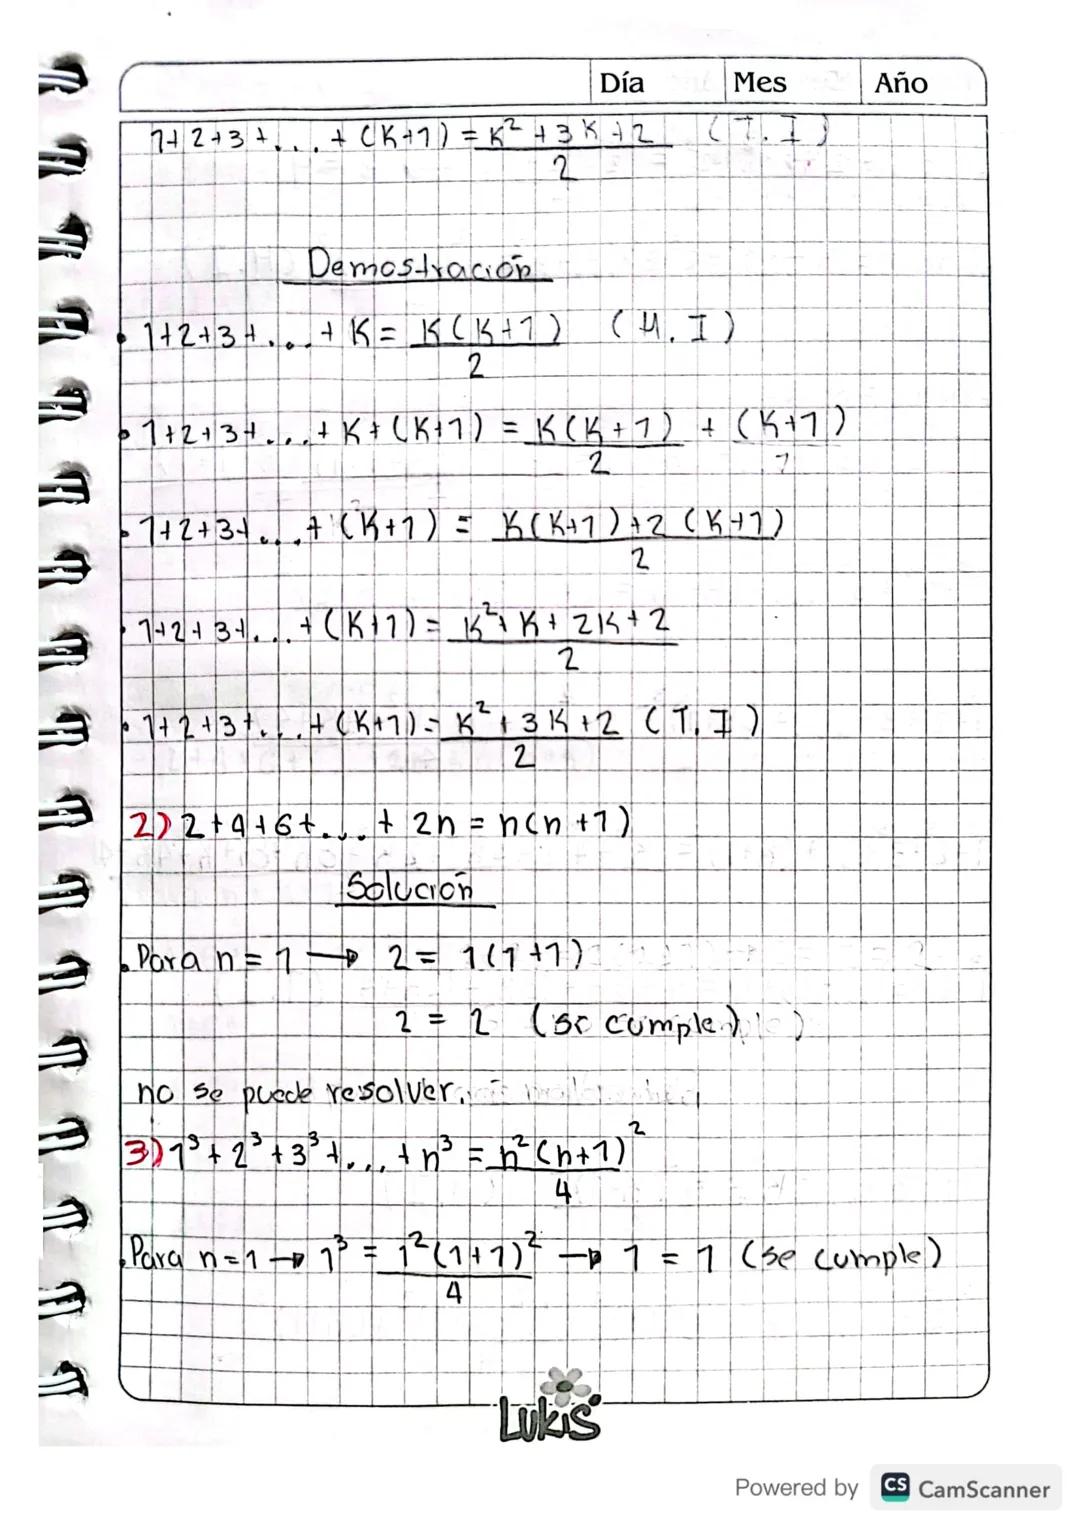 Día Mes Año
1+2+3+...+(K+1) = K²+3K+2 (T.I)
2
Demostración
• 1+2+3+...+K = K(K+1) (H.I)
2
• 1+2+3+...+K+(K+1) = K(K+1) + (K+1)
2 1
• 1+2+3+...+(K+1) = K(K+1)+2(K+1)
2
• 1+2+3+...+(K+1) = K²+K+2K+2
2
• 1+2+3+...+(K+1) = K²+3K+2 (T.I)
2
2) 2+4+6+...+2n = n(n+1)
Solución
• Para n=1 → 2 = 1(1+1)
2 = 2 (se cumple)
no se puede resolver.
3) 1³+2³+3³+...+n³ = n²(n+1)²
4
• Para n=1 → 1³ = 1²(1+1)² → 1 = 1 (se cumple)
4
LUKIS
Powered by CS CamScanner